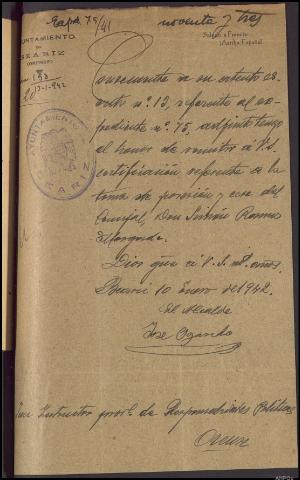 Expd. 75/41
noventa y tres
AYUNTAMIENTO
DE
BEARIZ
(ORENSE)
Saludo a Franco:
¡Arriba España!
Consecuente a su atento es-
crito nº. 13, referente al ex-
pediente nº. 75, adjunto tengo
el honor de remitir a V.S.
certificación referente a la
toma de posesión y cese del
Concejal, Don
Dios gue a V. S. ms. años.
Beariz 10 Enero de 1942.
El Alcalde
José Ogando
AYUNTAMIENTO
BEARIZ
Juez Instructor provl. de Responsabilidades Políticas
Orense